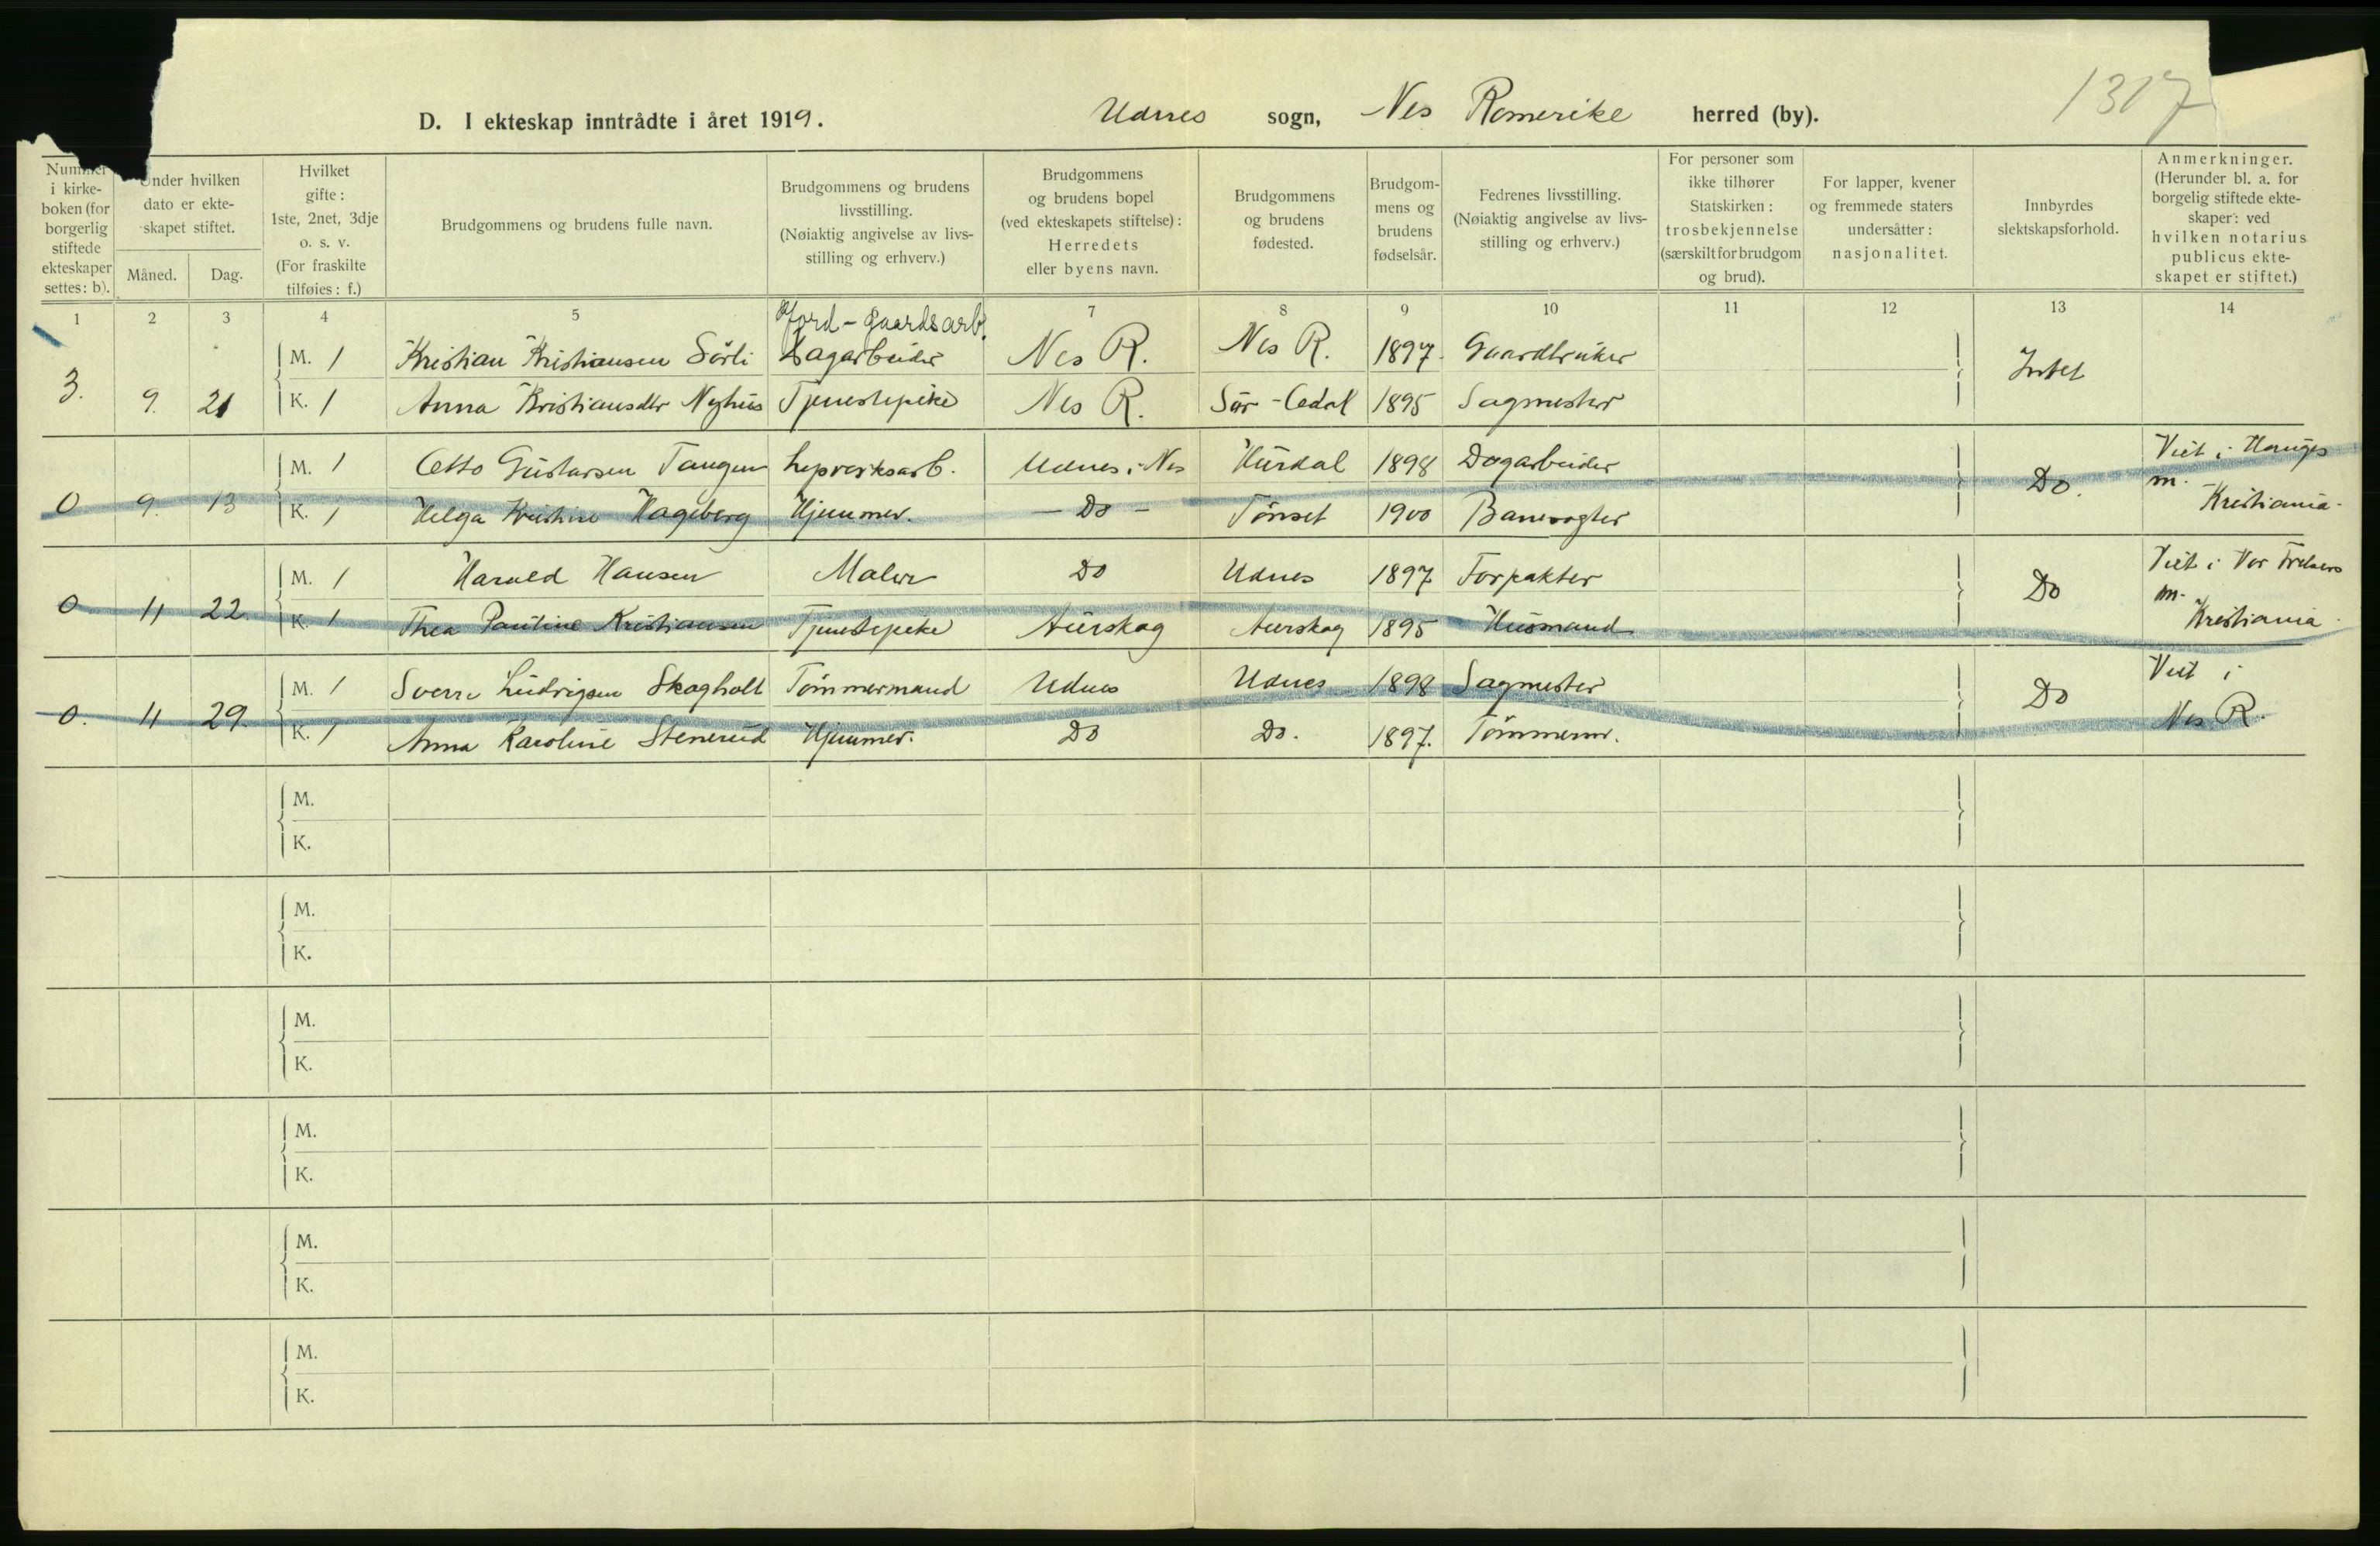 1317
D. I ekteskap inntrådte i året 1919. Udnes sogn, Nes Romerike herred (by).
Nummer i kirke-boken (for borgerlig stiftede ekteskaper settes: b).
Under hvilken dato er ekte-skapet stiftet.
Måned. Dag.
Hvilket gifte: 1ste, 2net, 3dje o. s. v. (For fraskilte tilføies: f.)
Brudgommens og brudens fulle navn.
Brudgommens og brudens livsstilling. (Nøiaktig angivelse av livs-stilling og erhverv.)
Brudgommens og brudens bopel (ved ekteskapets stiftelse): Herredets eller byens navn.
Brudgommens og brudens fødested.
Brudgom-mens og brudens fødselsår.
Fedrenes livsstilling. (Nøiaktig angivelse av livs-stilling og erhverv.)
For personer som ikke tilhører Statskirken: trosbekjennelse (særskilt for brudgom og brud).
For lapper, kvener og fremmede staters undersåtter: nasjonalitet.
Innbyrdes slektskapsforhold.
Anmerkninger. (Herunder bl. a. for borgelig stiftede ekte-skaper: ved hvilken notarius publicus ekte-skapet er stiftet.)
1 2 3 4 5 6 7 8 9 10 11 12 13 14
Jord-gaardsarb.
3. 9. 21 M. 1 Kristian Kristiansen Sörli Dagarbeider Nes R. Nes R. 1897. Gaardbruker Intet
K. 1 Anna Kristiansdtr Nyhus Tjenestepike Nes R. Sör-Odal 1895 Sagmester
0. 9. 13 M. 1 Otto Gustavsen Tangen Udnes i Nes Hurdal 1898 Dagarbeider Do. Viet i Hauges m. Kristiania.
K. 1 Helga Kristine Hageberg Hjemmev. - Do - Tönset 1900 Banevogter
0. 11 22. M. 1 Harald Hansen Maler Do Udnes 1897 Forpakter Do Viet i Vor Frelsers m. Kristiania.
K. 1 Thea Pauline Kristiansen Tjenestepike Aurskog Aurskog 1895 Husmand
0. 11 29. M. 1 Sverre Ludvigsen Skogholt Tömmermand Udnes Udnes 1898 Sagmester Do Viet i Nes R.
K. 1 Anna Karoline Stenerud Hjemmev. Do Do. 1897. Tömmerm.
M.
K.
M.
K.
M.
K.
M.
K.
M.
K.
M.
K.